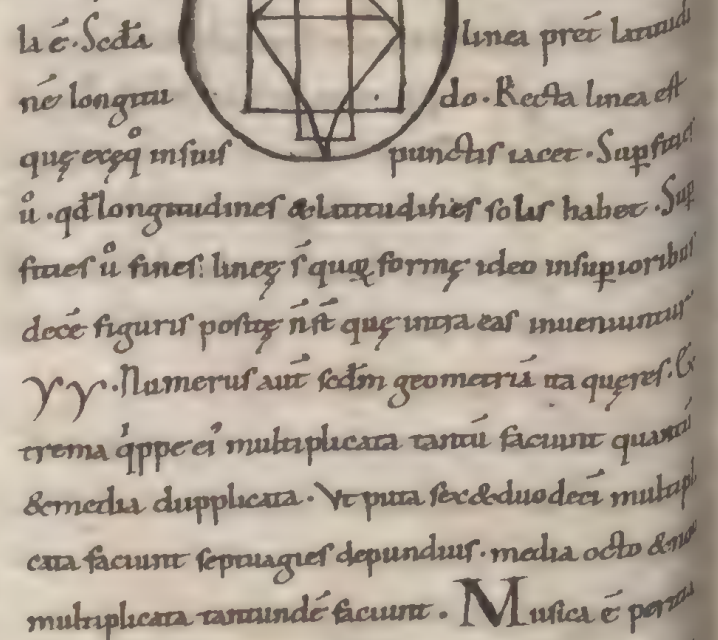 la ē. Scđa linea pret̄ latitudi
nē longitu do. Recta linea est
quę exęq͛ in suis punctis iacet. Sup̱fitiei
ů. qđ longitudines & latitudines solis habet. Sup̱
fities ů fines: lineę s̄ quaꝝ formę ideo in sup̱ioribus
decē figuris positę n̄ st̄ quę intra eas inueniuntur
γγ. Numerus aut̄ scđm geometriā ita quęres. Ex
trema q̍ppe ei᾽ multiplicata tantū faciunt quantū
& media dupplicata. Vt puta sex & duodeci̅ multipl
cata faciunt septuagies depundius. media octo & no
multiplicata tantundē faciunt. Musica ē peritia